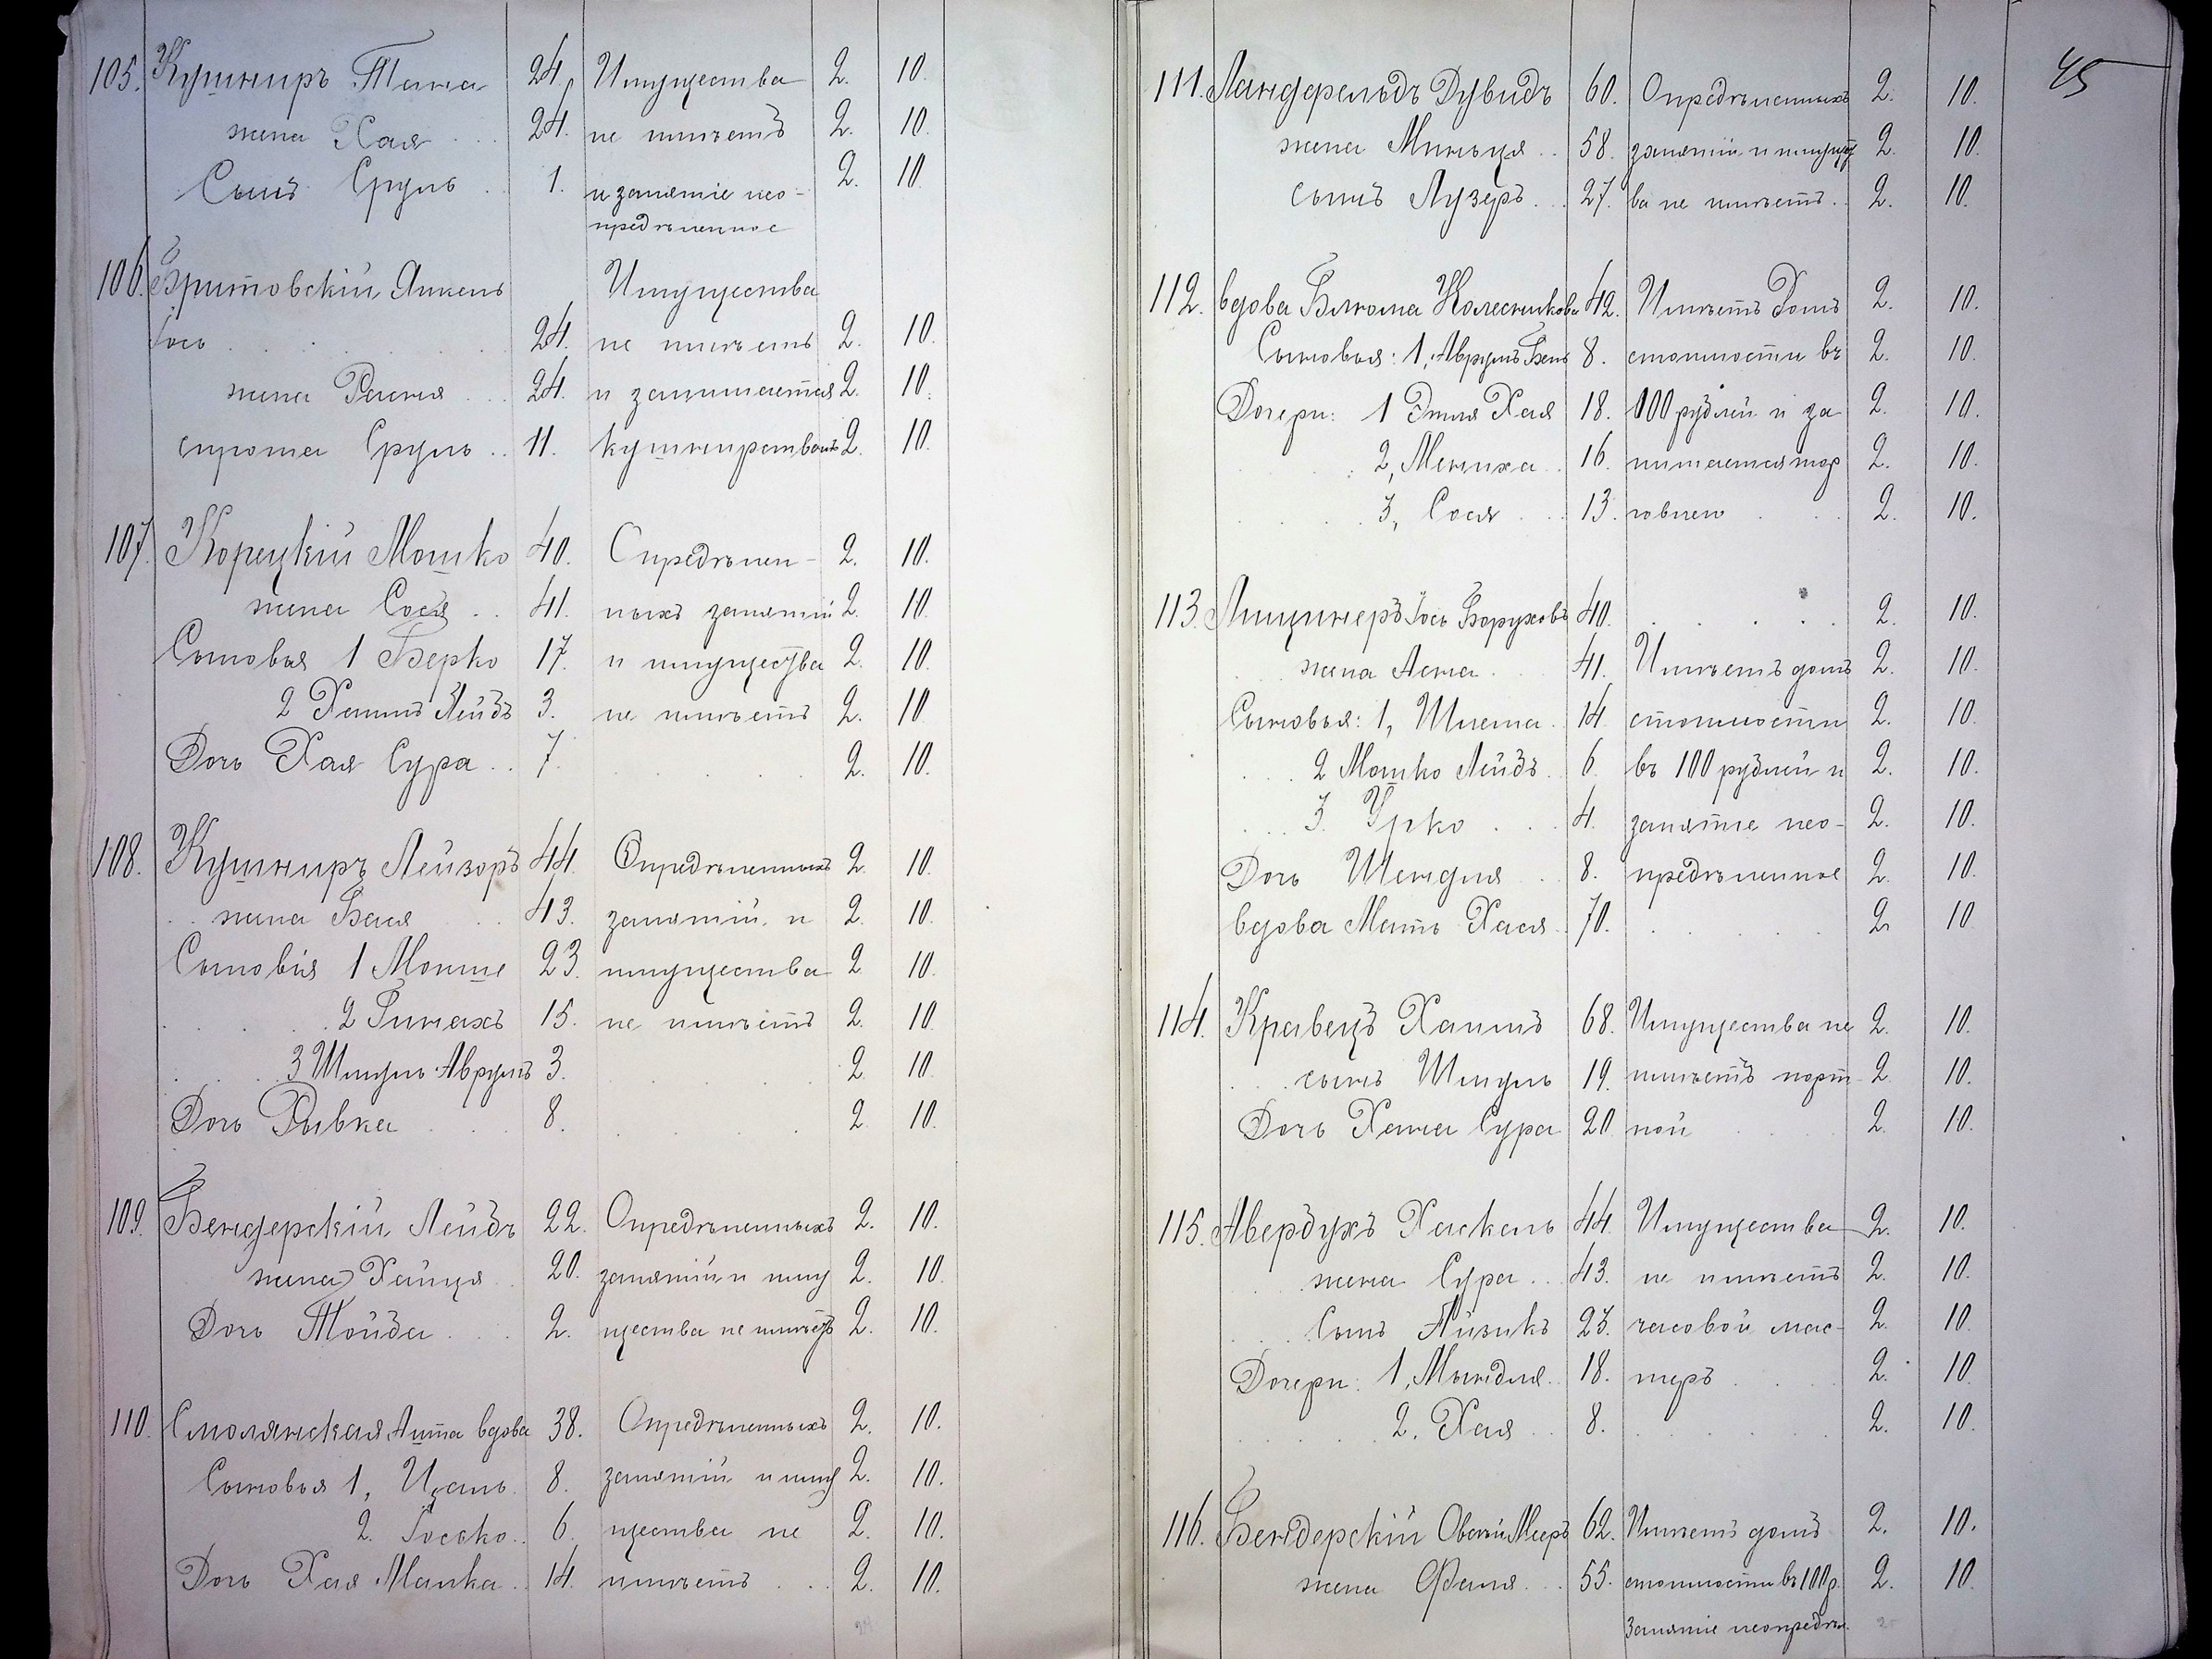 105. Кушниръ Тана 24. Имущества 2. 10.
жена Хая 24. не имѣетъ 2. 10.
Сынъ Сруль 1. и занятіе нео- 2. 10.
предѣленное
106. Бритовскій Янкель Имущества
Іось 24. не имѣетъ 2. 10.
жена Раися 24. и занимается 2. 10.
сирота Сруль 11. кушнирствомъ 2. 10.
107. Корецкій Мошко 40. Опредѣлен- 2. 10.
жена Сося 41. ныхъ занятій 2. 10.
Сыновья 1 Берко 17. и имущества 2. 10.
2 Хаимъ Лейбъ 3. не имѣетъ 2. 10
Дочь Хая Сура 7. 2. 10.
108. Кушниръ Лейзоръ 44. Опредѣленныхъ 2. 10.
жена Бася 43. занятій и 2. 10.
Сыновья 1 Мошше 23. имущества 2 10.
2 Пинахъ 15. не имѣетъ 2. 10
3 Шмуль Аврумъ 3. 2 10
Дочь Рывка 8. 2. 10.
109. Бендерскій Лейбъ 22. Опредѣленныхъ 2. 10.
жена Хайця 20. занятій и иму 2. 10.
Дочь Тойба 2. щества не имѣетъ 2. 10.
110. Смолянская Аита вдова 38. Опредѣленныхъ 2. 10.
Сыновья 1, Ицель 8. занятій и иму 2. 10.
2. Госько 6. щества не 2. 10.
Дочь Хая Малка 14. имѣетъ 2. 10.
45
111. Ландфельдъ Дувидъ 60. Опредѣленныхъ 2. 10.
жена Миньця 58. занятій и имущест 2. 10.
сынъ Лузеръ 27. ва не имѣетъ. 2. 10.
112. вдова Блюма Колесникова 42. Имѣетъ Домъ 2. 10.
Сыновья: 1, Аврумъ Бень 8. стоимости въ 2. 10.
Дочери: 1 Этля Хая 18. 100 рублей и за 2. 10.
2, Мениха 16. нимается тор 2. 10.
3, Сося 13. говлею 2. 10.
113. Лищинеръ Іось Боруховъ 40. 2. 10.
жена Асна 41. Имѣетъ домъ 2. 10.
Сыновья: 1, Шлема 14. стоимости 2. 10.
2 Мошко Лейбъ 6. въ 100 рублей и 2. 10.
3. Урко 4. занятіе нео- 2. 10.
Дочь Шендля 8. предѣленное 2. 10.
вдова Мать Хася 70. 2. 10
114. Кравецъ Хаимъ 68. Имущества не 2. 10.
сынъ Шмуль 19. имѣетъ порт- 2. 10.
Дочь Хана Сура 20. ной 2. 10.
115. Авербухъ Хаскель 44. Имущества 2. 10.
жена Сура 43. не имѣетъ 2. 10.
Сынъ Айзикъ 23. часовой мас- 2. 10.
Дочери: 1, Мындля 18. теръ 2. 10.
2. Хая 8. 2. 10.
116. Бендерскій Овсей Мееръ 62. Имѣетъ домъ 2. 10.
жена Фаня 55. стоимости въ 100 р. 2. 10.
Занятіе неопредѣл.